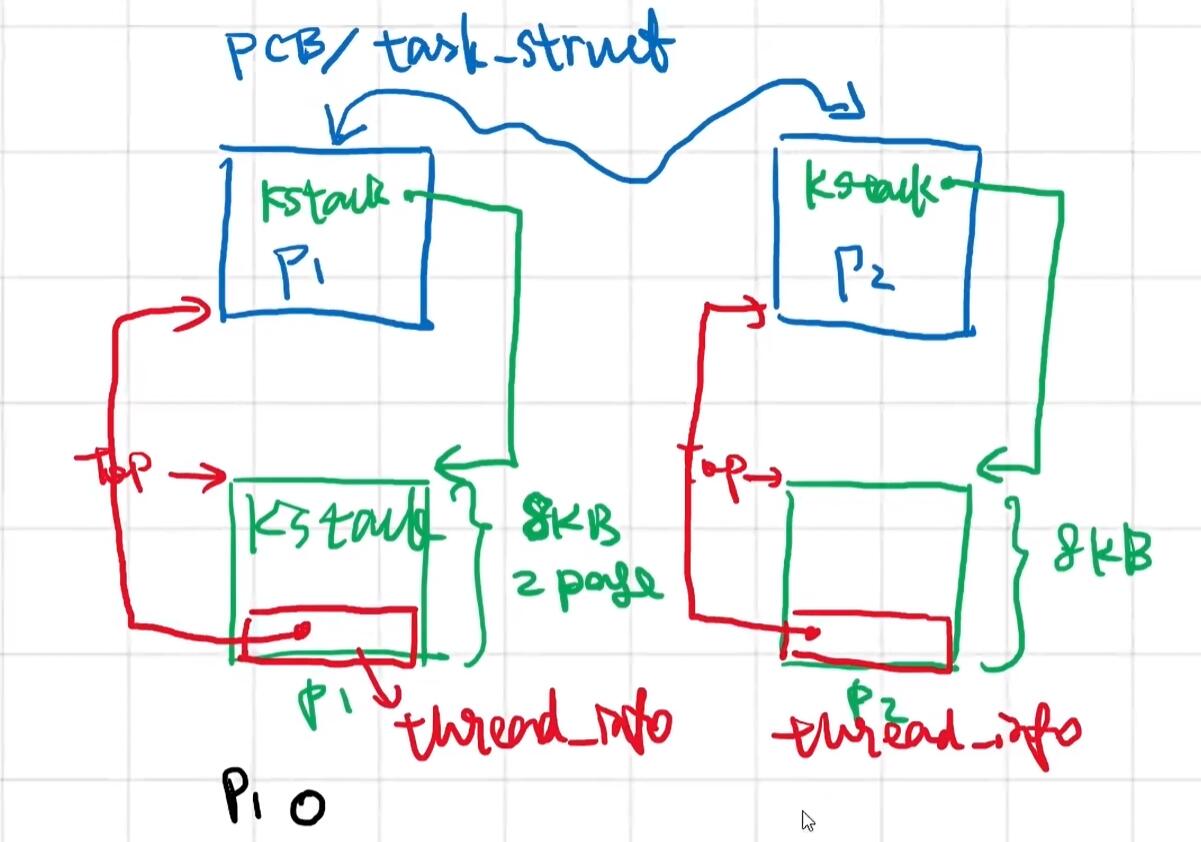 PCB/task_struct
kstack
P1
kstack
P2
Top
kstack
8KB
2 page
Top
8KB
P1
thread_info
P2
thread_info
P1 O